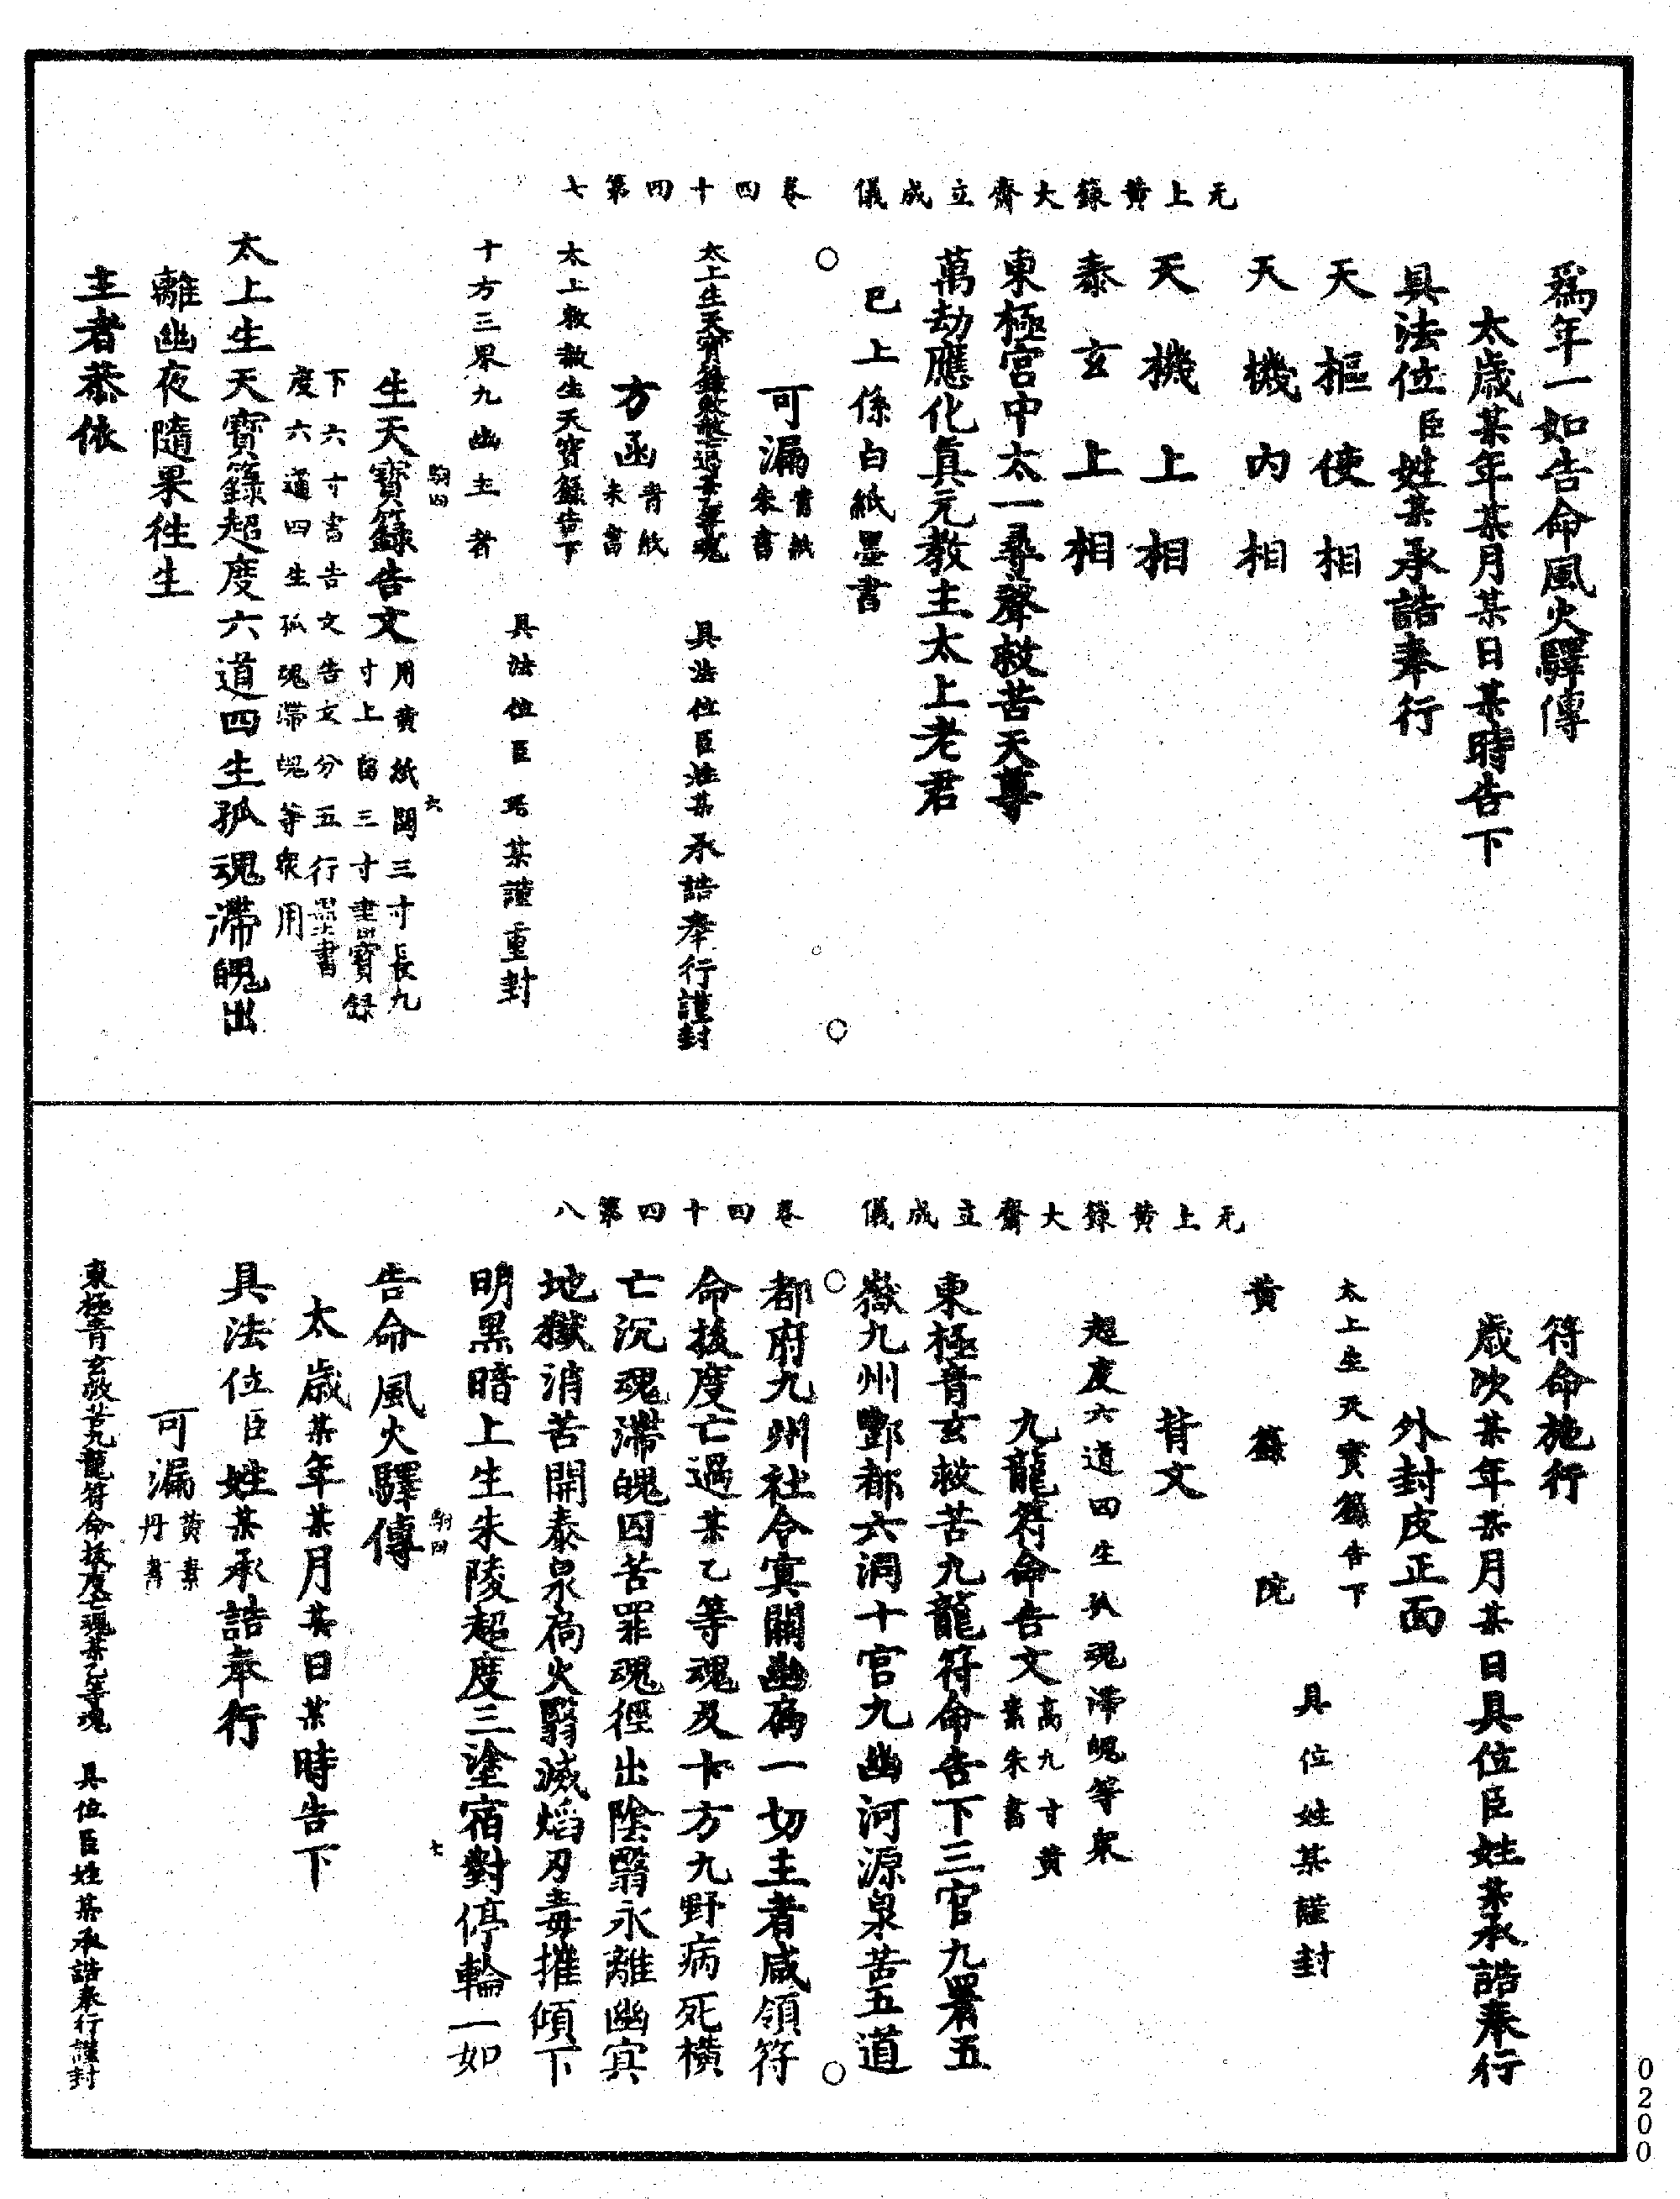 元上黃籙大齋立成儀　卷四十四第七
爲年一如告命風火驛傳
太歲某年某月某日某時告下
具法位臣姓某承誥奉行
天樞使相
天機內相
天機上相
泰玄上相
東極宮中太一尋聲救苦天尊
萬劫應化眞元教主太上老君
已上係白紙墨書
可漏青紙朱書
太上生天寶籙救拔亡過某乙等魂　具法位臣姓某承誥奉行謹封
方函青紙朱書
太上敕救生天寶籙告下　具法位臣姓某謹重封
十方三界九幽主者
生天寶籙告文用黃紙闊三寸長九寸上留三寸畫寶籙下六寸書告文告文分五行墨書度六道四生孤魂滯魄等衆用
駒四
六
太上生天寶籙超度六道四生孤魂滯魄出
離幽夜隨果徃生
主者恭依
元上黃籙大齋立成儀　卷四十四第八
符命施行
歲次某年某月某日具位臣姓某承誥奉行
外封皮正面
太上生天寶籙告下　具位姓某謹封
黃籙院
背文
超度六道四生孤魂滯魄等衆
九龍符命告文高九寸黃素朱書
東極青玄救苦九龍符命告下三官九署五
嶽九州酆都六洞十宮九幽河源泉苦五道
都府九州社令冥關幽扃一切主者咸領符
命拔度亡過某乙等魂及十方九野病死橫
亡沉魂滯魄囚苦罪魂徑出陰翳永離幽冥
地獄消苦開泰泉扃火翳滅熖刃毒摧傾下
明黑暗上生朱陵超度三塗宿對停輪一如
告命風火驛傳
駒四
七
太歲某年某月某日某時告下
具法位臣姓某承誥奉行
可漏黃素丹書
東極青玄救苦九龍符命拔度亡魂某乙等魂　具位臣姓某承誥奉行謹封
0200